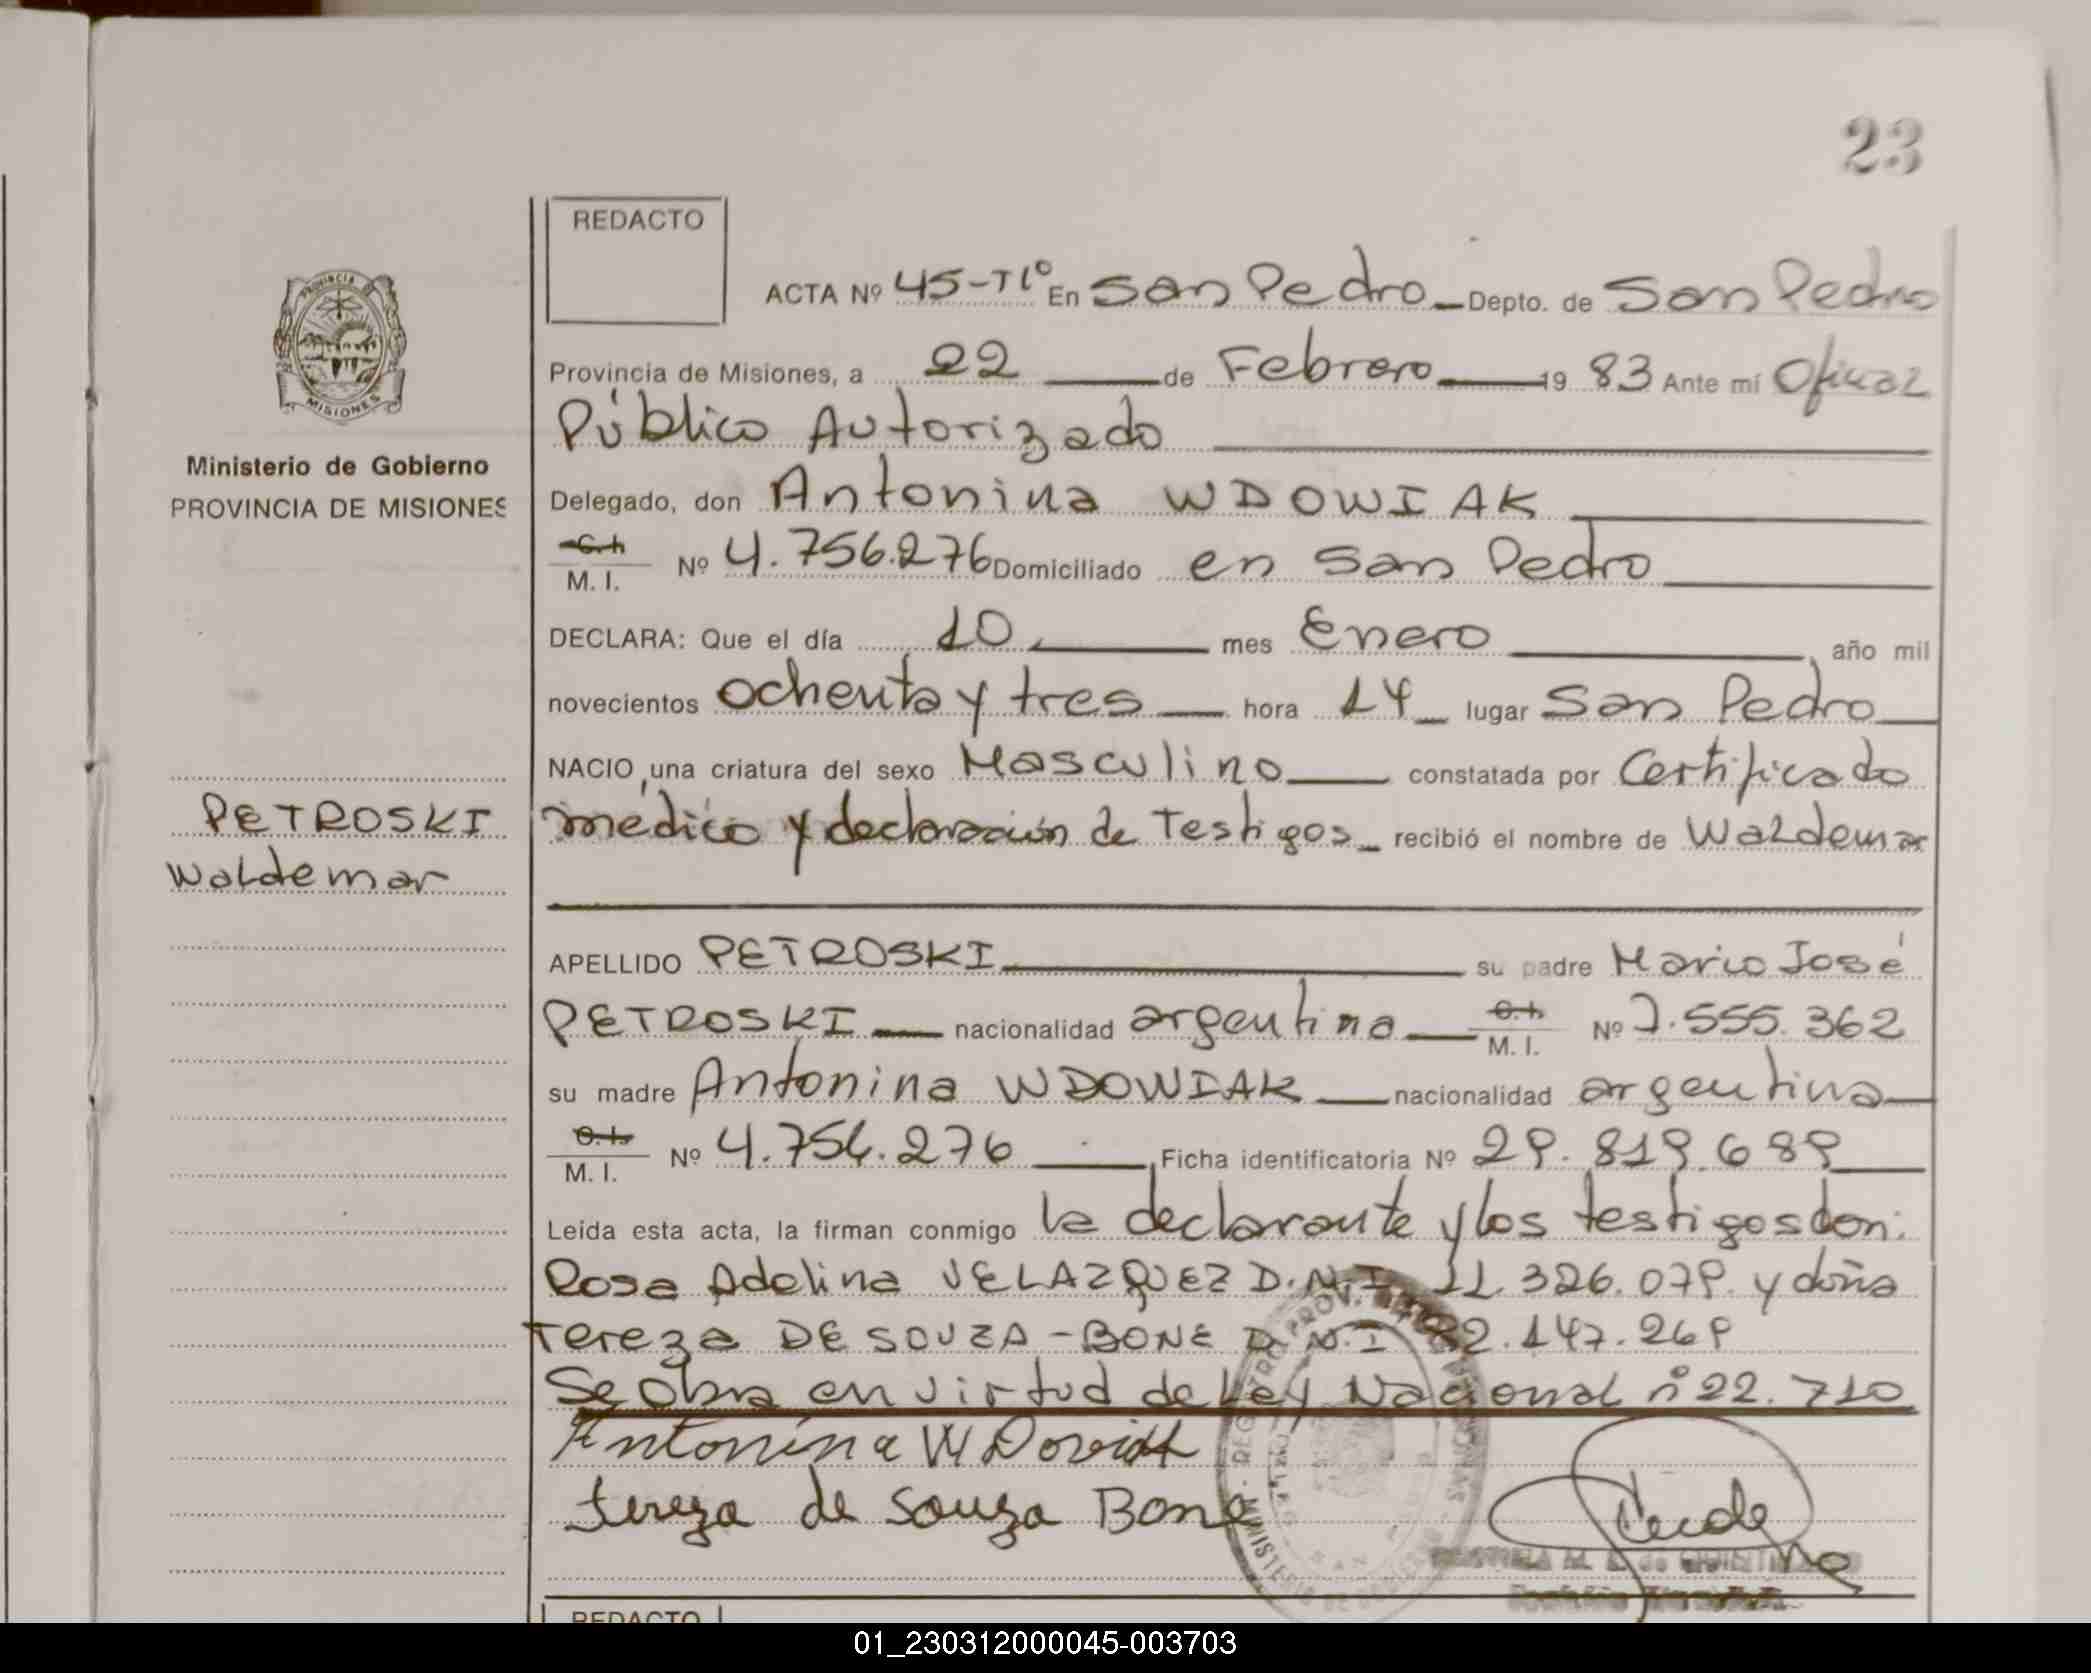 23
REDACTO
ACTA Nº 45-Tlº En San Pedro Depto. de San Pedro
Provincia de Misiones, a 22 de Febrero 19 83 Ante mí Oficial
Público Autorizado
Delegado, don Antonina WDOWIAK
C.I. M. I. Nº 4.756.276 Domiciliado en San Pedro
DECLARA: Que el día 10 mes Enero año mil
novecientos ochenta y tres hora 14 lugar San Pedro
NACIO una criatura del sexo Masculino constatada por Certificado
médico y declaración de Testigos recibió el nombre de Waldemar
APELLIDO PETROSKI su padre Mario José
PETROSKI nacionalidad argentina C.I. M. I. Nº 7.555.362
su madre Antonina WDOWIAK nacionalidad argentina
C.I. M. I. Nº 4.756.276 Ficha identificatoria Nº 29.819.689
Leída esta acta, la firman conmigo la declarante y los testigos don:
Rosa Adelina VELAZQUEZ D.N.I 11.326.079. y doña
Tereza DE SOUZA-BONE D.N.I 92.147.269
Se Obra en virtud de Ley Nacional nº 22.710
Antonina WDoviak
tereza de Souza Bone
PROVINCIA
MISIONES
Ministerio de Gobierno
PROVINCIA DE MISIONES
PETROSKI
Waldemar
REDACTO
01_230312000045-003703